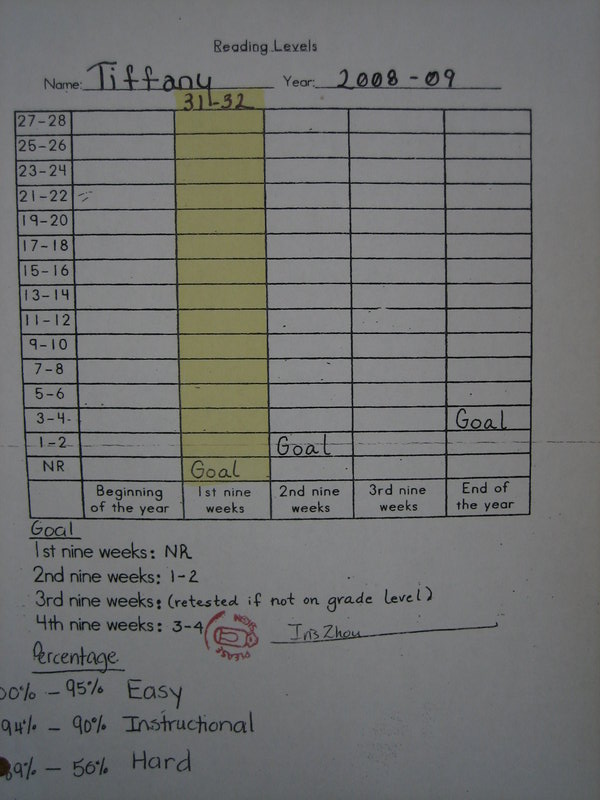 Reading Levels
Name: Tiffany Year: 2008-09
31-32
27-28
25-26
23-24
21-22
19-20
17-18
15-16
13-14
11-12
9-10
7-8
5-6
3-4 Goal
1-2 Goal
NR Goal
Beginning of the year 1st nine weeks 2nd nine weeks 3rd nine weeks End of the year
Goal
1st nine weeks: NR
2nd nine weeks: 1-2
3rd nine weeks: (retested if not on grade level)
4th nine weeks: 3-4
PLEASE SIGN
Iris Zhou
Percentage
00% - 95% Easy
94% - 90% Instructional
89% - 50% Hard